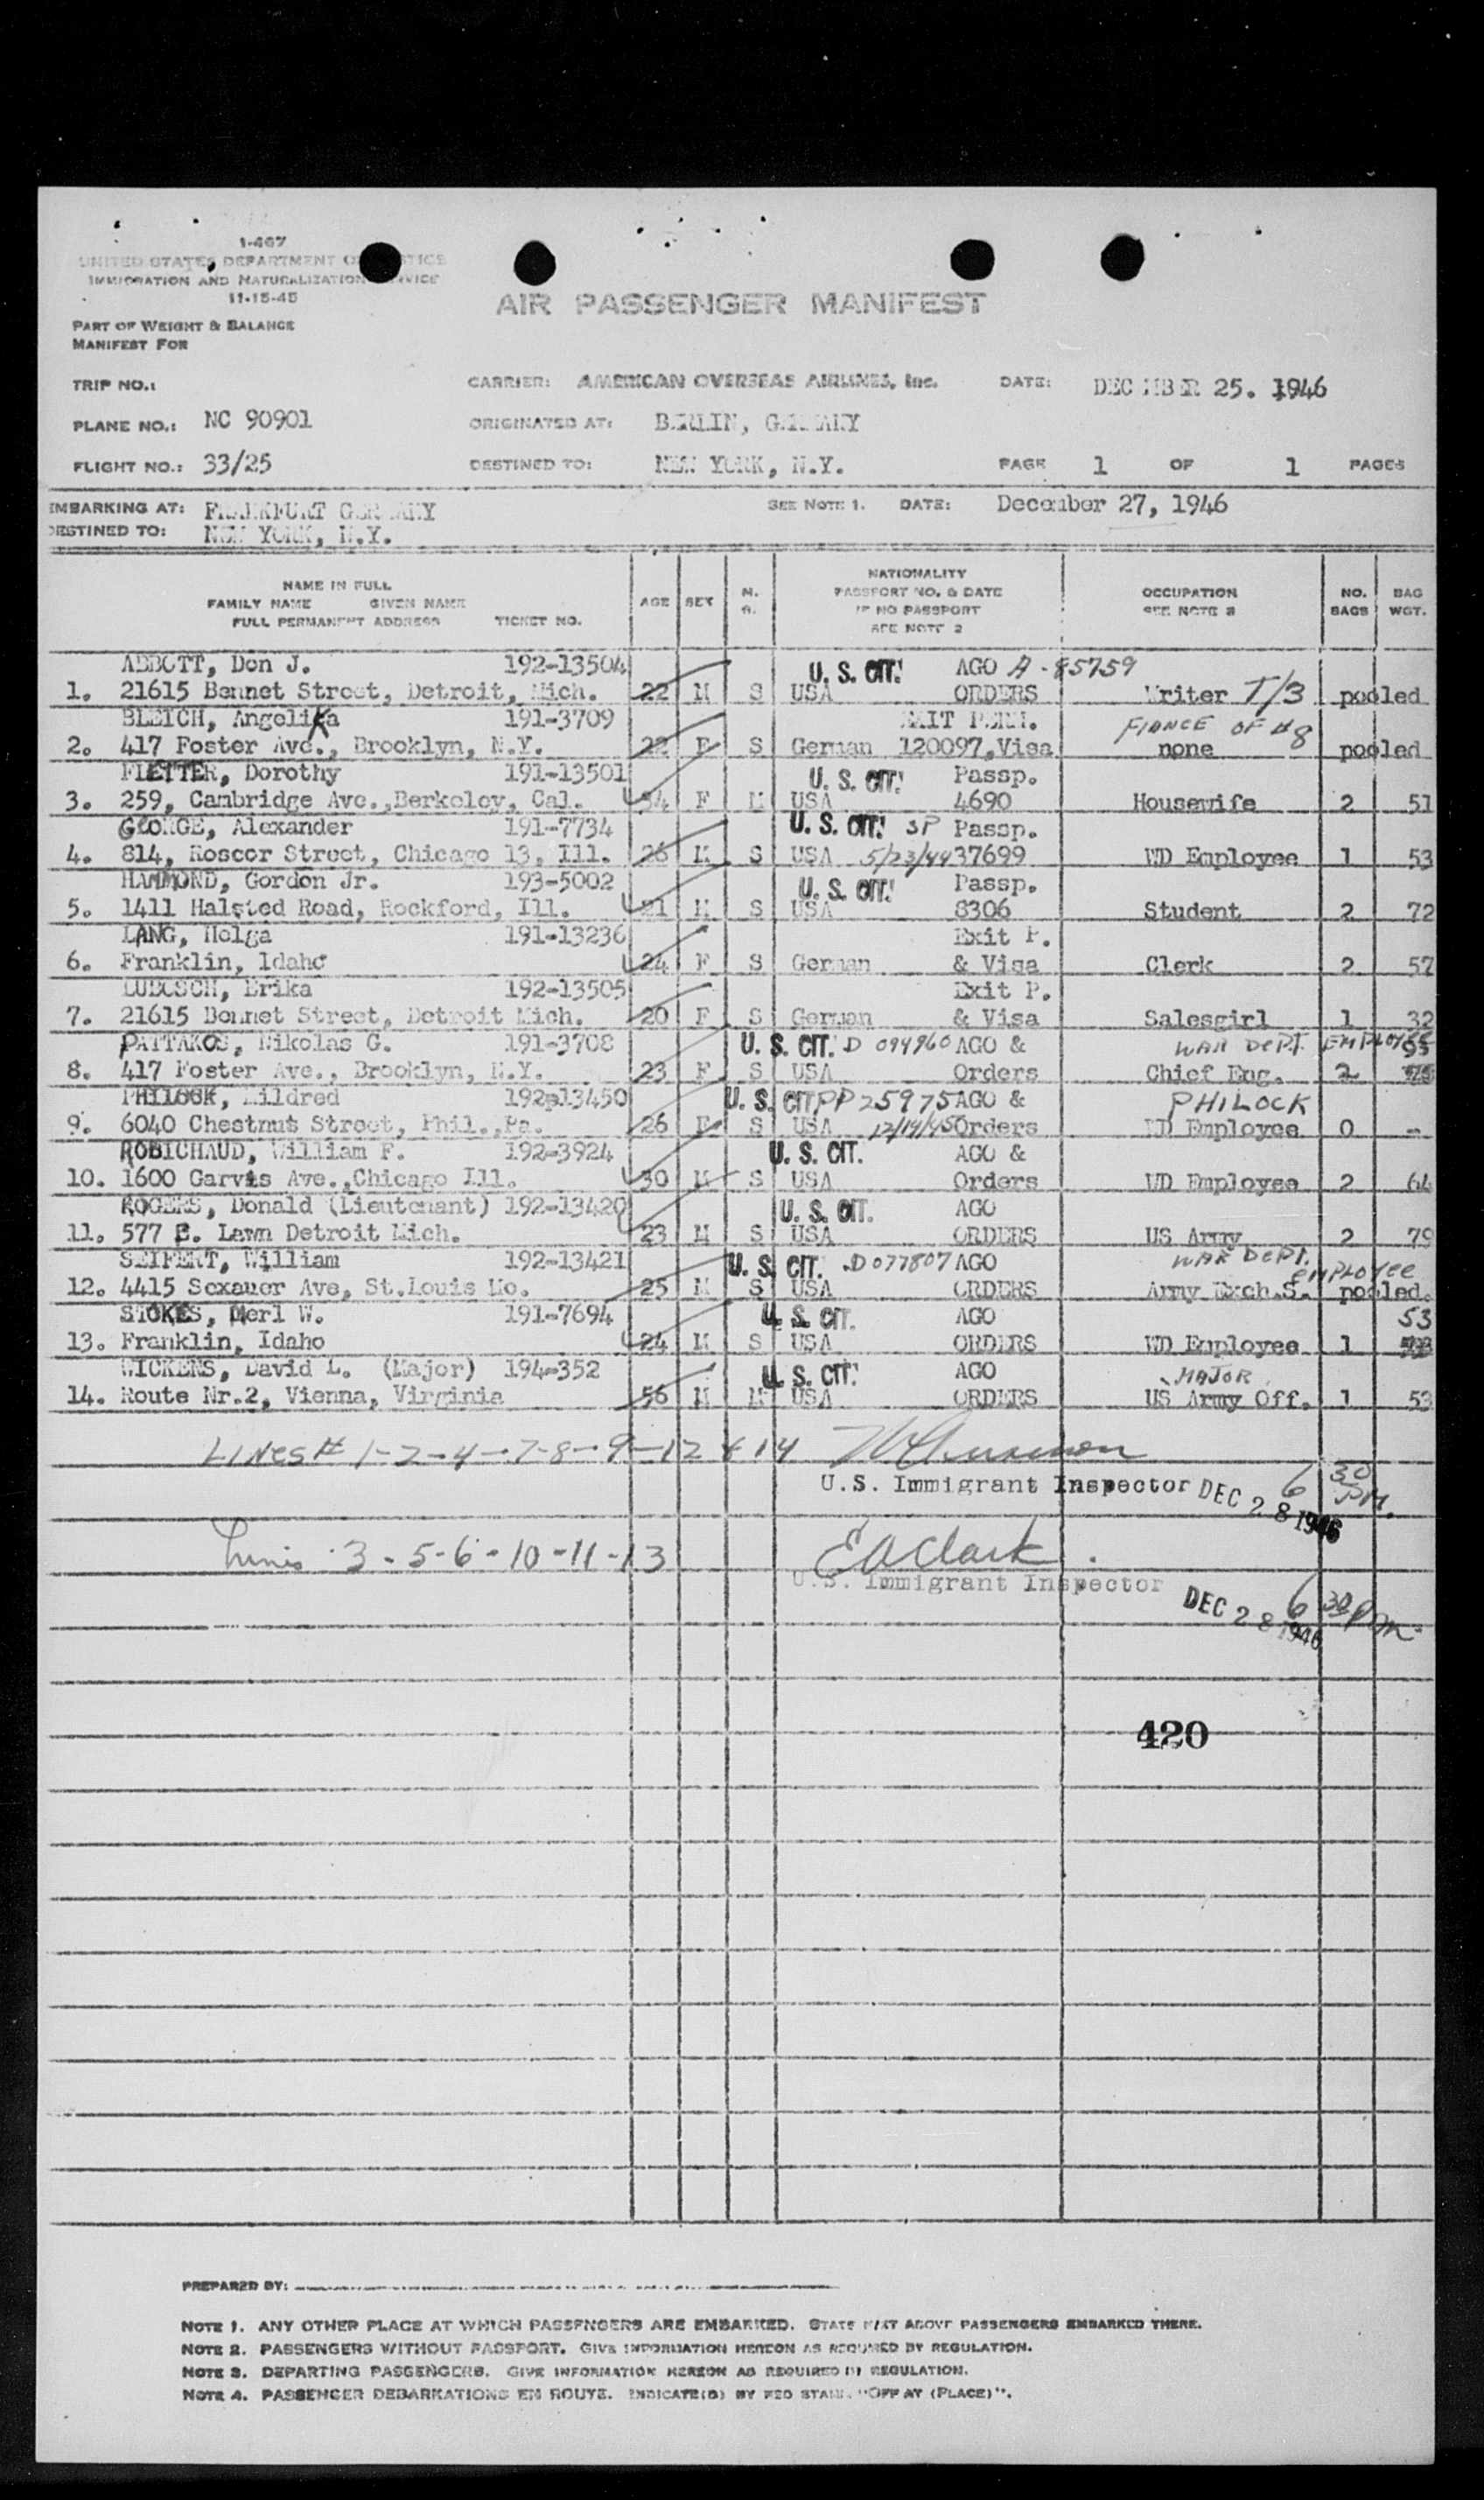 1-467
UNITED STATES DEPARTMENT OF JUSTICE
IMMIGRATION AND NATURALIZATION SERVICE
11-15-45
AIR PASSENGER MANIFEST
PART OF WEIGHT & BALANCE
MANIFEST FOR
TRIP NO.: CARRIER: AMERICAN OVERSEAS AIRLINES, Inc. DATE: DECEMBER 25. 1946
PLANE NO.: NC 90901 ORIGINATED AT: BERLIN, GERMANY
FLIGHT NO.: 33/25 DESTINED TO: NEW YORK, N.Y. PAGE 1 OF 1 PAGES
EMBARKING AT: FRANKFURT GERMANY SEE NOTE 1. DATE: December 27, 1946
DESTINED TO: NEW YORK, N.Y.
NAME IN FULL
FAMILY NAME GIVEN NAME
FULL PERMANENT ADDRESS TICKET NO. AGE SEX M. S. NATIONALITY
PASSPORT NO. & DATE
IF NO PASSPORT
SEE NOTE 2 OCCUPATION
SEE NOTE 3 NO.
BAGS BAG
WGT.
ABBOTT, Don J. 192-13504 U. S. CIT. AGO A-85759
1. 21615 Bennet Street, Detroit, Mich. 22 M S USA ORDERS Writer T/3 pooled
BLEICH, Angelika 191-3709 EXIT PERM. FIANCE OF #8
2. 417 Foster Ave., Brooklyn, N.Y. 22 F S German 120097,Visa none pooled
FLETTER, Dorothy 191-13501 U. S. CIT. Passp.
3. 259, Cambridge Ave.,Berkeley, Cal. 34 F M USA 4690 Housewife 2 51
GEORGE, Alexander 191-7734 U. S. CIT. SP Passp.
4. 814, Roscor Street, Chicago 13, Ill. 26 M S USA 5/23/44 37699 WD Employee 1 53
HAMMOND, Gordon Jr. 193-5002 U. S. CIT. Passp.
5. 1411 Halsted Road, Rockford, Ill. 21 M S USA 8306 Student 2 72
LANG, Helga 191-13236 Exit P.
6. Franklin, Idaho 24 F S German & Visa Clerk 2 57
LUBOSCH, Erika 192-13505 Exit P.
7. 21615 Bennet Street, Detroit Mich. 20 F S German & Visa Salesgirl 1 32
PATTAKOS, Nikolas G. 191-3708 U. S. CIT. D 094960 AGO & WAR DEPT. EMPLOYEE
8. 417 Foster Ave., Brooklyn, N.Y. 23 F S USA Orders Chief Eng. 2
PHILOCK, Mildred 192-13450 U. S. CIT PP 25975 AGO & PHILOCK
9. 6040 Chestnut Street, Phil.,Pa. 26 F S USA 12/19/45 Orders WD Employee 0 -
ROBICHAUD, William F. 192-3924 U. S. CIT. AGO &
10. 1600 Garvis Ave.,Chicago Ill. 30 M S USA Orders WD Employee 2 64
ROGERS, Donald (Lieutenant) 192-13420 U. S. CIT. AGO
11. 577 E. Lawn Detroit Mich. 23 M S USA ORDERS US Army 2 79
SEIFERT, William 192-13421 U. S. CIT. D077807 AGO WAR DEPT. EMPLOYEE
12. 4415 Sexauer Ave, St.Louis Mo. 25 M S USA ORDERS Army Exch.S. pooled.
STOKES, Merl W. 191-7694 U. S. CIT. AGO 53
13. Franklin, Idaho 24 M S USA ORDERS WD Employee 1
WICKENS, David L. (Major) 194-352 U. S. CIT. AGO MAJOR
14. Route Nr.2, Vienna, Virginia 56 M M USA ORDERS US Army Off. 1 53
LINES # 1-2-4-7-8-9-12 & 14
U.S. Immigrant Inspector DEC 28 1946 6 30 PM.
Lines 3-5-6-10-11-13 E A Clark
U.S. Immigrant Inspector DEC 28 1946 6 30 pm
420
PREPARED BY:
NOTE 1. ANY OTHER PLACE AT WHICH PASSENGERS ARE EMBARKED. STATE THAT ABOVE PASSENGERS EMBARKED THERE.
NOTE 2. PASSENGERS WITHOUT PASSPORT. GIVE INFORMATION HEREON AS REQUIRED BY REGULATION.
NOTE 3. DEPARTING PASSENGERS. GIVE INFORMATION HEREON AS REQUIRED BY REGULATION.
NOTE 4. PASSENGER DEBARKATIONS EN ROUTE. INDICATE(D) BY RED STAMP "OFF AT (PLACE)".